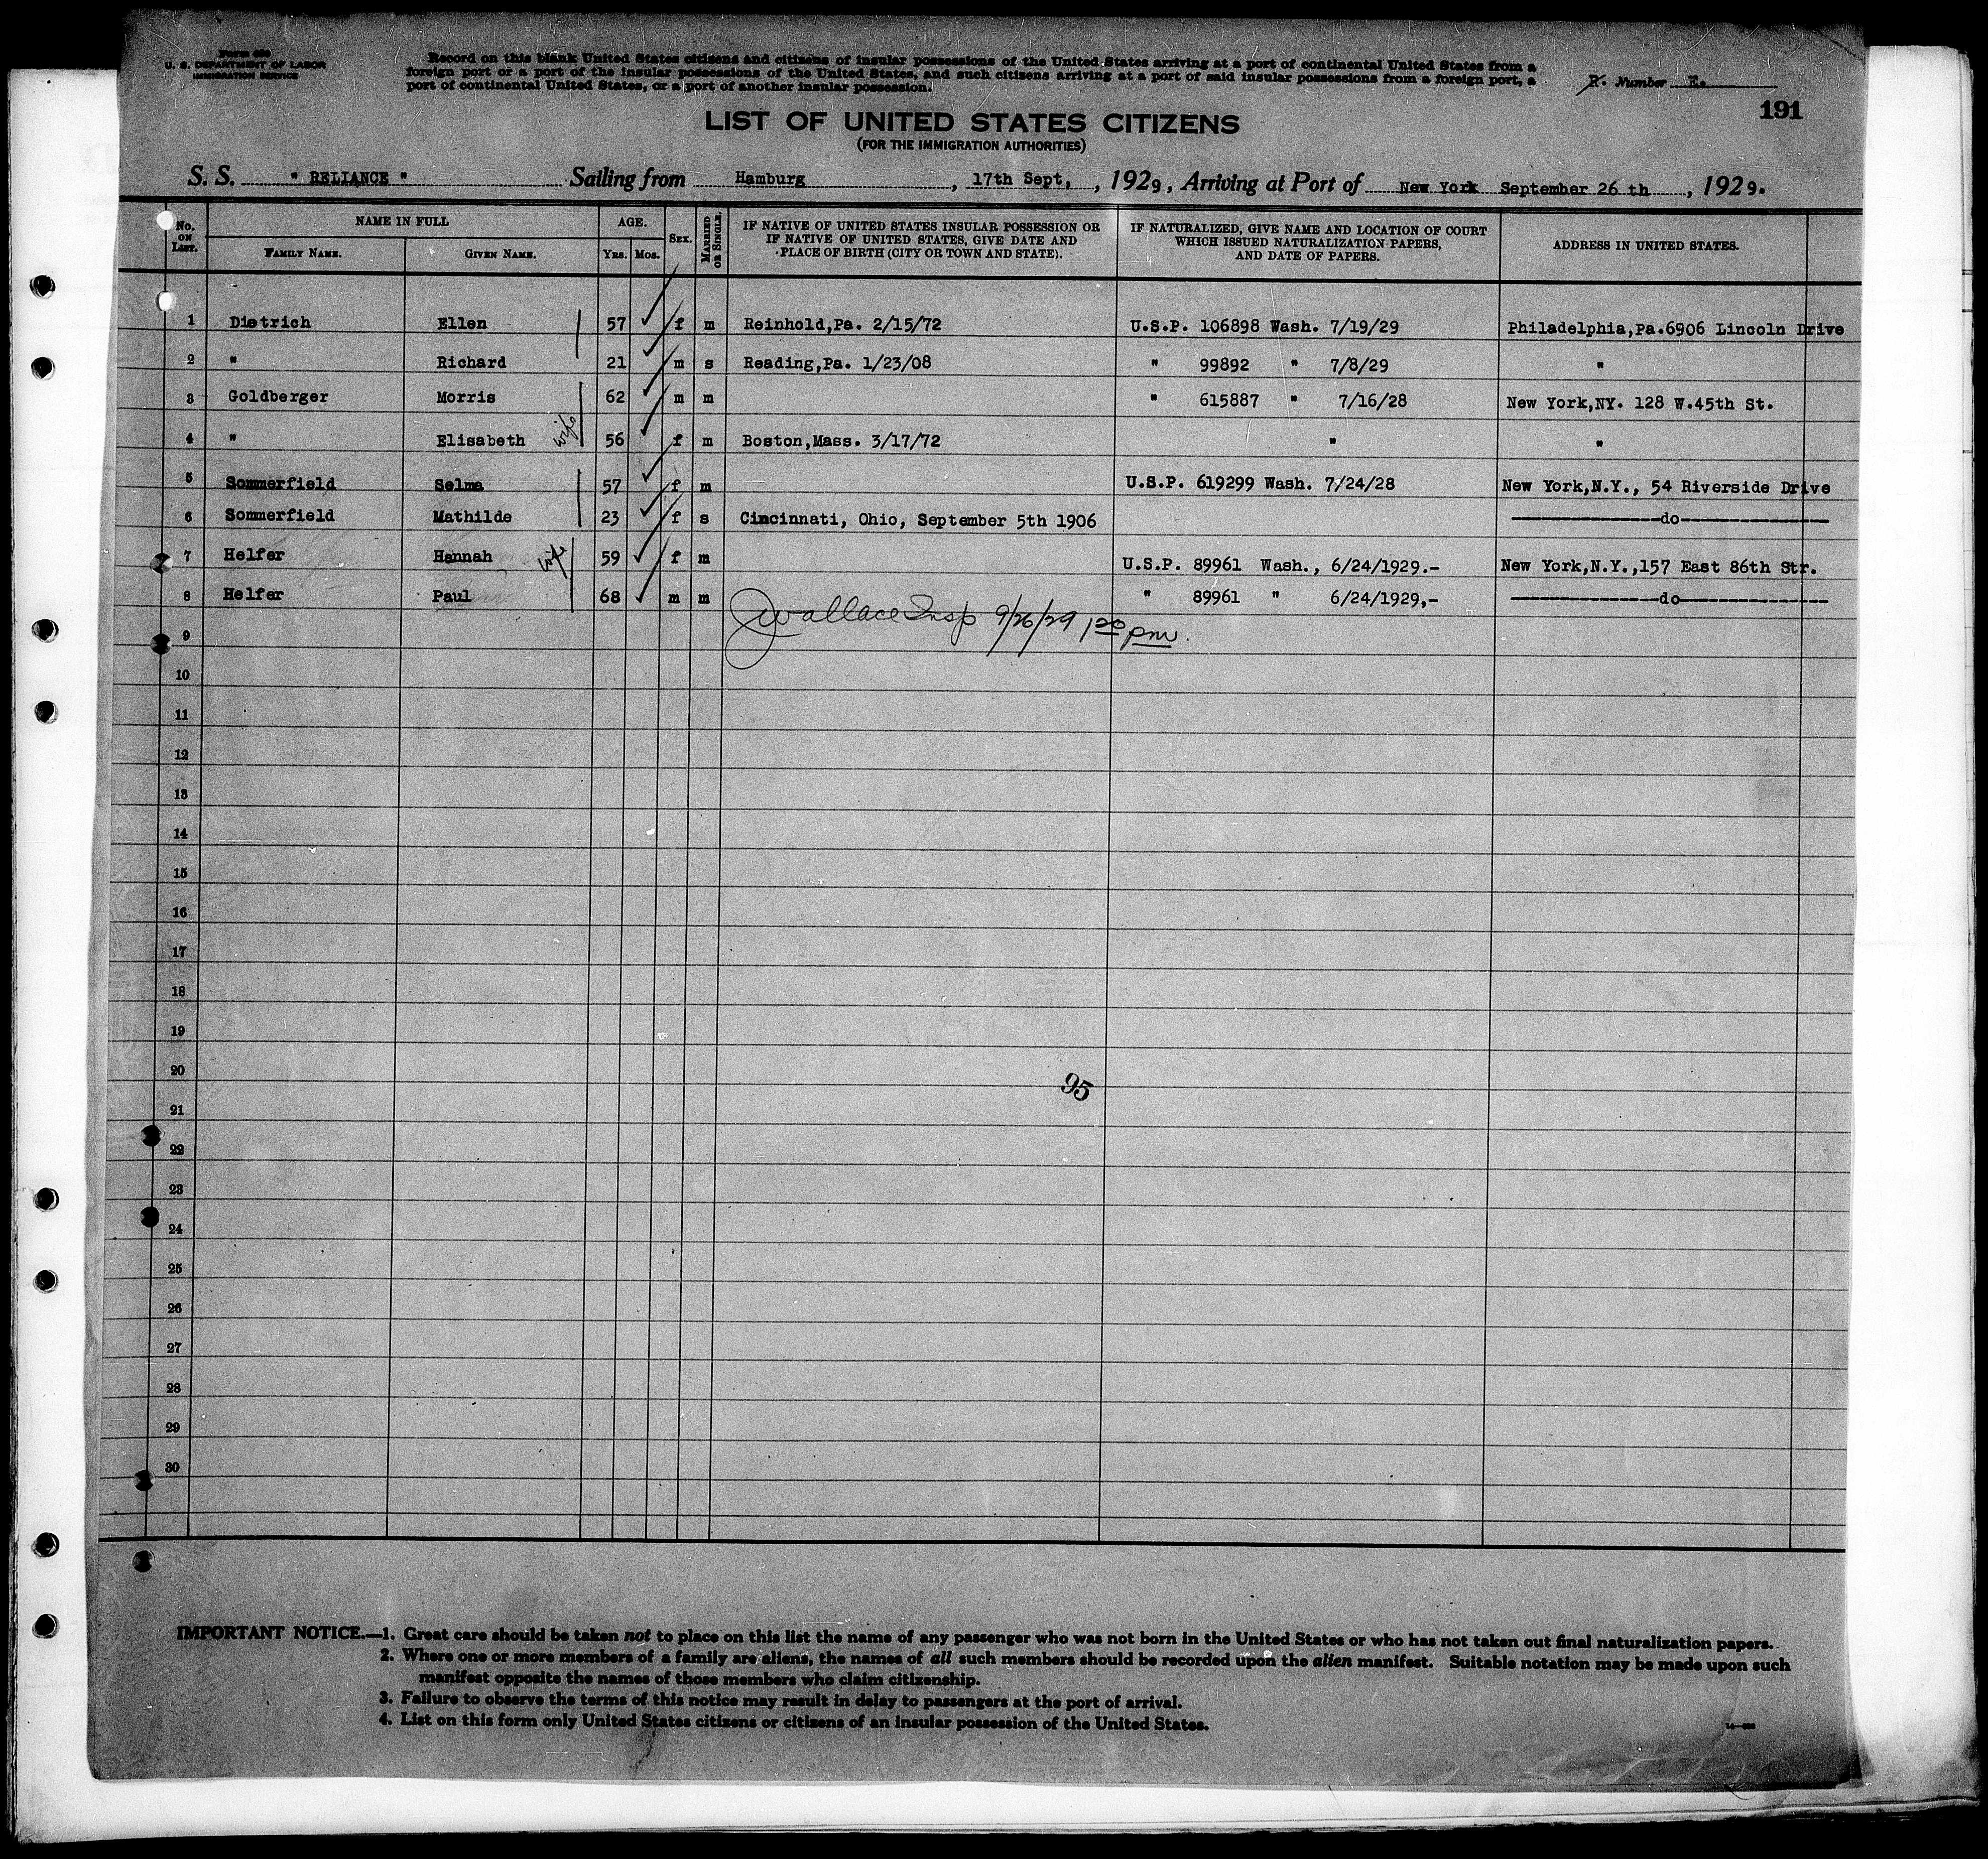 Form 630
U. S. DEPARTMENT OF LABOR
IMMIGRATION SERVICE
Record on this blank United States citizens and citizens of insular possessions of the United States arriving at a port of continental United States from a
foreign port or a port of the insular possessions of the United States, and such citizens arriving at a port of said insular possessions from a foreign port, a
port of continental United States, or a port of another insular possession.
R. Number E.
191
LIST OF UNITED STATES CITIZENS
(FOR THE IMMIGRATION AUTHORITIES)
S. S. " RELIANCE " Sailing from Hamburg, 17th Sept., 1929, Arriving at Port of New York September 26 th, 1929.
No. ON LIST. NAME IN FULL FAMILY NAME. GIVEN NAME. AGE. YRS. MOS. SEX. MARRIED OR SINGLE. IF NATIVE OF UNITED STATES INSULAR POSSESSION OR IF NATIVE OF UNITED STATES, GIVE DATE AND PLACE OF BIRTH (CITY OR TOWN AND STATE). IF NATURALIZED, GIVE NAME AND LOCATION OF COURT WHICH ISSUED NATURALIZATION PAPERS, AND DATE OF PAPERS. ADDRESS IN UNITED STATES.
1 Dietrich Ellen 57 f m Reinhold,Pa. 2/15/72 U.S.P. 106898 Wash. 7/19/29 Philadelphia,Pa.6906 Lincoln Drive
2 " Richard 21 m s Reading,Pa. 1/23/08 " 99892 " 7/8/29 "
3 Goldberger Morris 62 m m " 615887 " 7/16/28 New York,NY. 128 W.45th St.
4 " Elisabeth wife 56 f m Boston,Mass. 3/17/72 " "
5 Sommerfield Selma 57 f m U.S.P. 619299 Wash. 7/24/28 New York,N.Y., 54 Riverside Drive
6 Sommerfield Mathilde 23 f s Cincinnati, Ohio, September 5th 1906 ----do----
7 Helfer Hannah wife 59 f m U.S.P. 89961 Wash., 6/24/1929.- New York,N.Y.,157 East 86th Str.
8 Helfer Paul 68 m m " 89961 " 6/24/1929,- ----do----
JWallace Insp 9/26/29 1 20 pm.
9
10
11
12
13
14
15
16
17
18
19
20
95
21
22
23
24
25
26
27
28
29
30
IMPORTANT NOTICE.—1. Great care should be taken not to place on this list the name of any passenger who was not born in the United States or who has not taken out final naturalization papers.
2. Where one or more members of a family are aliens, the names of all such members should be recorded upon the alien manifest. Suitable notation may be made upon such
manifest opposite the names of those members who claim citizenship.
3. Failure to observe the terms of this notice may result in delay to passengers at the port of arrival.
4. List on this form only United States citizens or citizens of an insular possession of the United States.